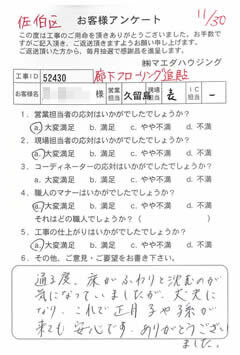 佐伯区 お客様アンケート 11/30
この度は工事のご用命を頂きありがとうございました。お手数です
がご記入頂き、ご返送頂きますようお願い申し上げます。
ご返送頂いた方から、毎月抽選で感謝品を進呈します。
㈱マエダハウジング
工事ID 52430 廊下フローリング重貼
お客様名 営業担当 久留島 現場担当 IC ー
1. 営業担当者の応対はいかがでしたでしょうか?
a. 大変満足 b. 満足 c. やや不満 d. 不満
2. 現場担当者の応対はいかがでしたでしょうか?
a. 大変満足 b. 満足 c. やや不満 d. 不満
3. コーディネーターの応対はいかがでしたでしょうか?
a. 大変満足 b. 満足 c. やや不満 d. 不満
4. 職人のマナーはいかがでしたでしょうか?
a. 大変満足 b. 満足 c. やや不満 d. 不満
それはどの職人でしょうか?( )
5. 工事の仕上がりはいかがでしたでしょうか?
a. 大変満足 b. 満足 c. やや不満 d. 不満
6. その他、ご意見・ご要望をお書き下さい。
通る度、床がふわりと沈むのが
気になっていましたが、丈夫に
なり、これで正月子や孫が
来ても安心です。ありがとうござい
ました。